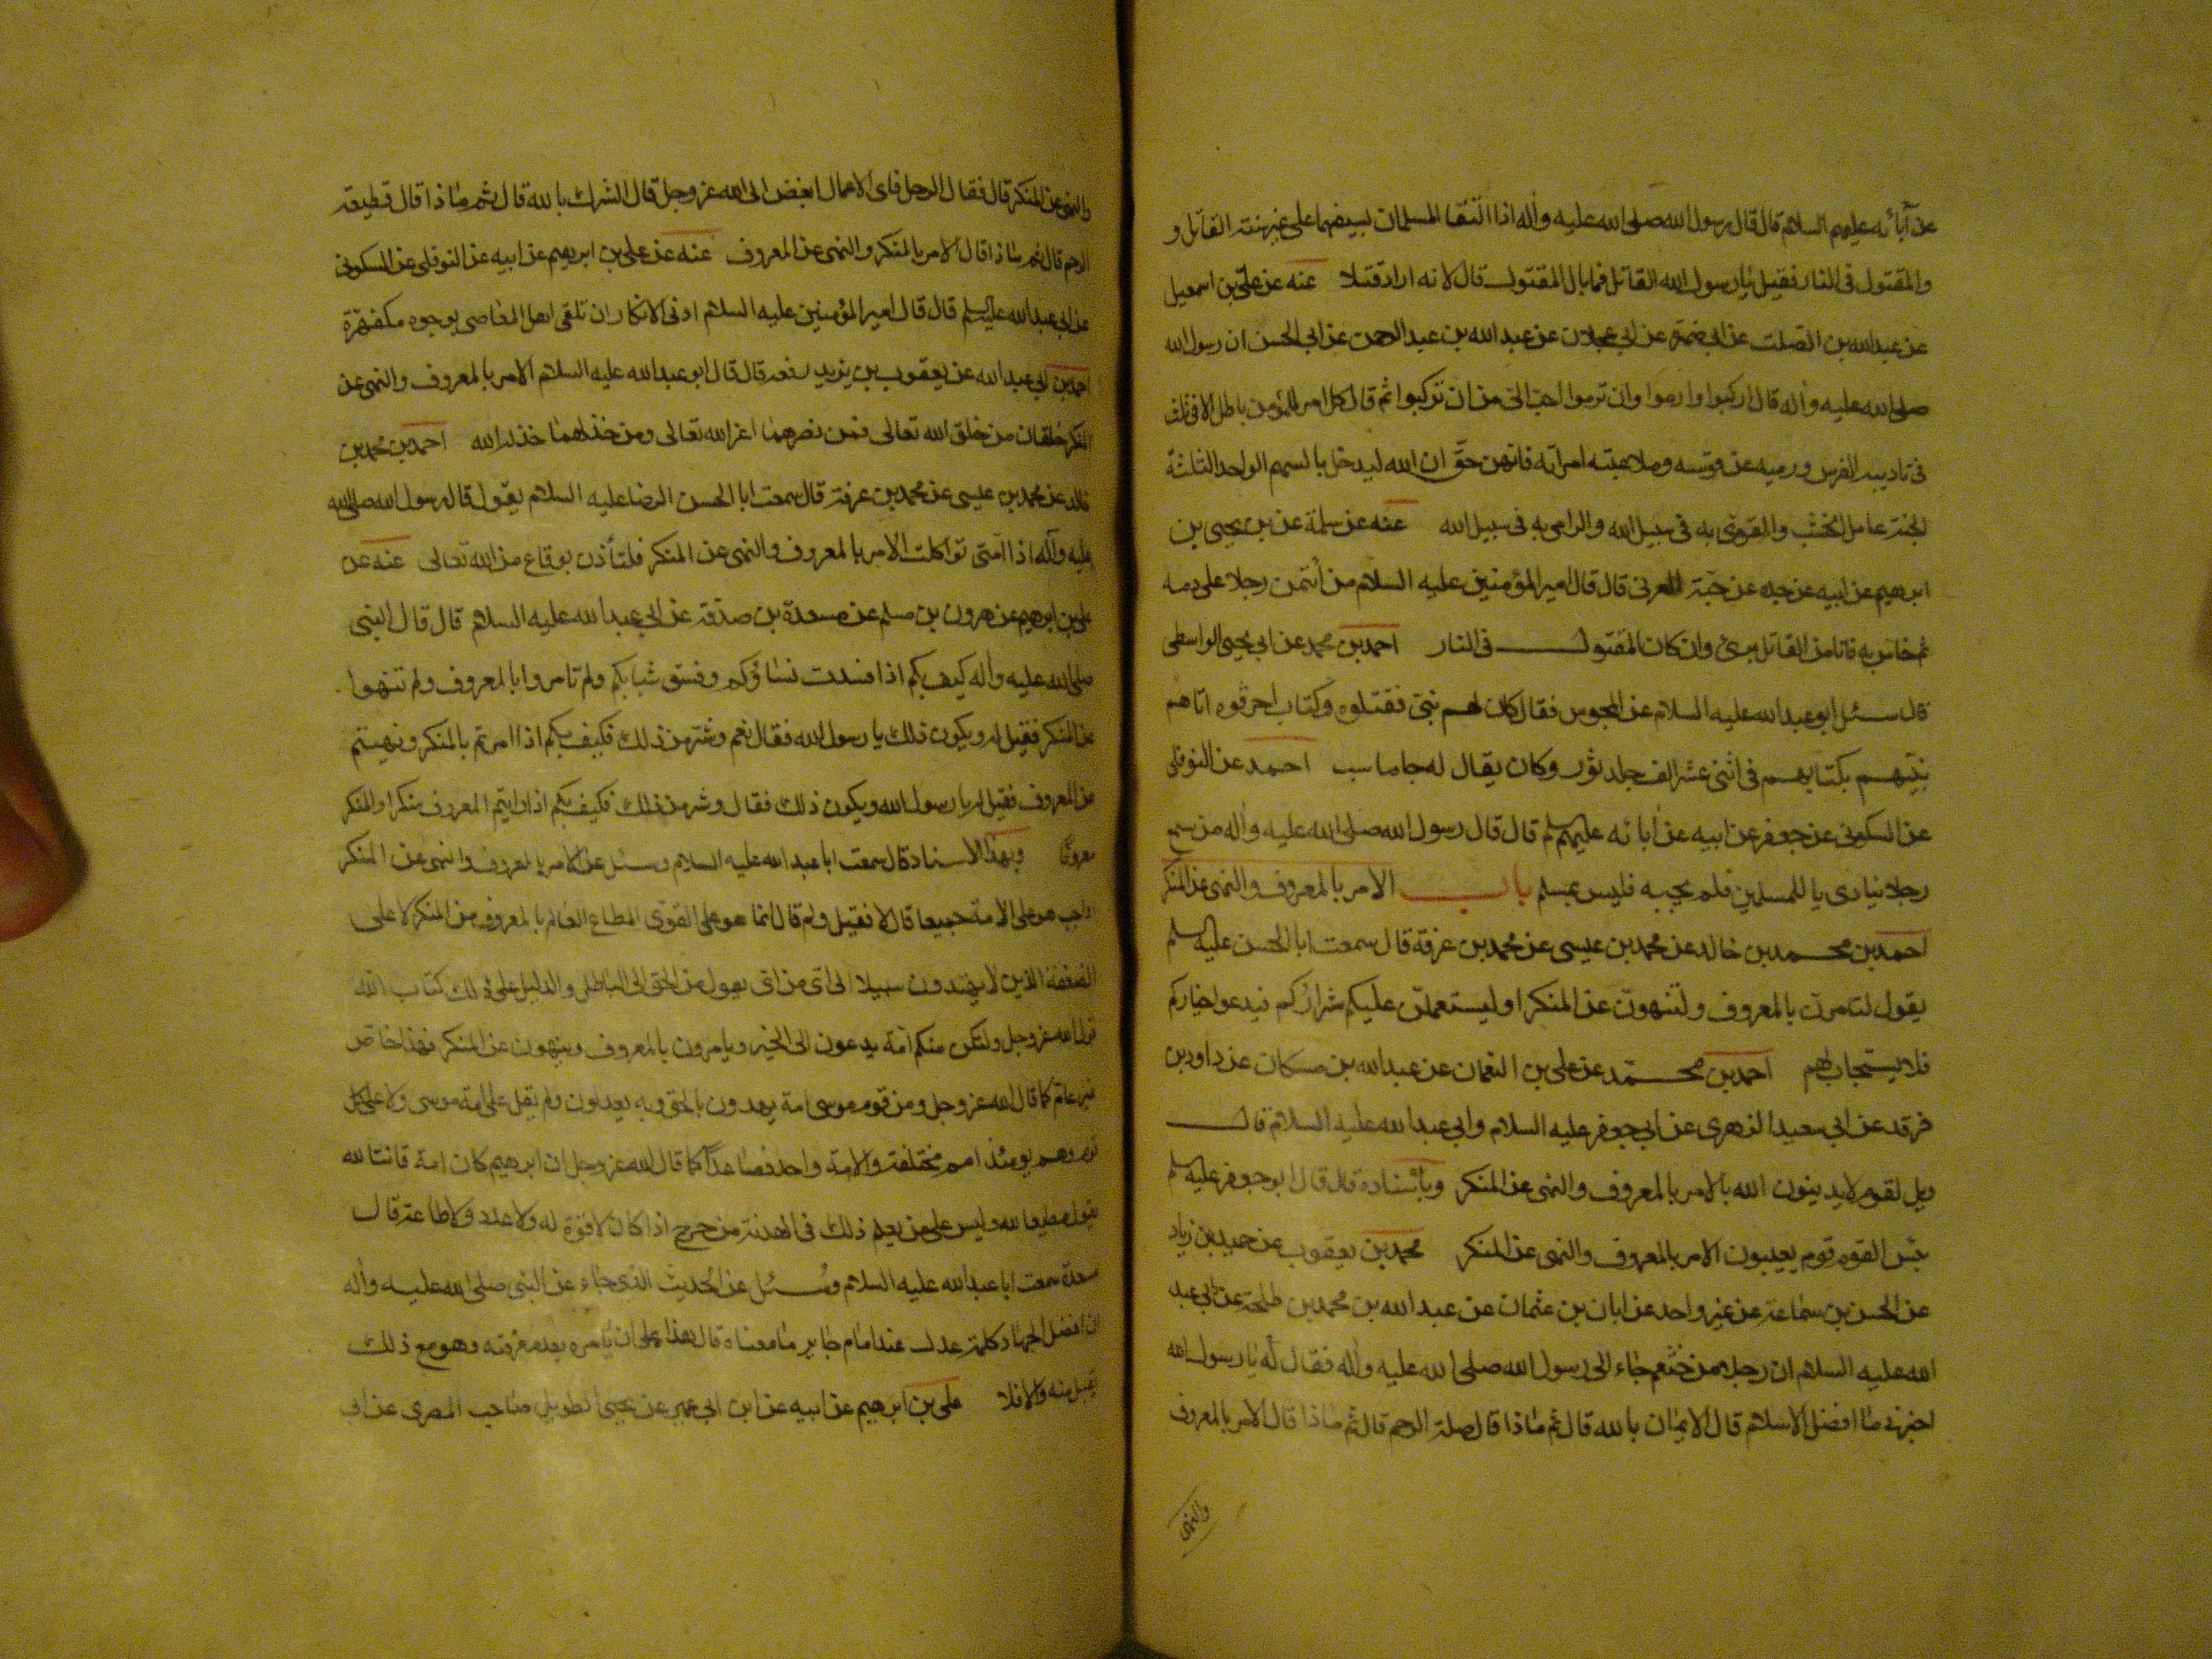 عن آبائه عليهم السلام قال قال رسول الله صلى الله عليه وآله اذا التقا المسلمان بسيفهما على غير سنة القاتل و
والمقتول فى النار فقيل يا رسول الله القاتل فما بال المقتول قال لانه اراد قتلا عنه عن على بن اسمعيل
عن عبدالله بن الصلت عن ابى ضمرة عن ابى عجلان عن عبد الله بن عبد الرحمن عن ابى الحسن ان رسول الله
صلى الله عليه وآله قال اركبوا وارموا وان ترموا احب الى من ان تركبوا ثم قال كل امر للمؤمن باطل الا فى ثلث
فى تاديبه الفرس ورميه عن قوسه وملاعبته امراته فانهن حق ان الله ليدخل بالسهم الواحد الثلثة
الجنة عامل الخشب والمقوى به فى سبيل الله والرامى به فى سبيل الله عنه عن سلمة عن بن يحيى بن
ابرهيم عن ابيه عن جده عن حبة العرنى قال قال امير المؤمنين عليه السلام من ائتمن رجلا على دمه
ثم خاس به فانا من القاتل برئ وان كان المقتول فى النار احمد بن محمد عن ابى يحيى الواسطى
قال سئل ابو عبد الله عليه السلام عن المجوس فقال كان لهم نبى فقتلوه وكتاب احرقوه اتاهم
نبيهم بكتابهم فى اثنى عشر الف جلد ثور وكان يقال له جاماسب احمد عن النوفلى
عن السكونى عن جعفر عن ابيه عن آبائه عليهم سلم قال قال رسول الله صلى الله عليه وآله من سمع
رجلا ينادى يا للمسلمين فلم يجبه فليس بمسلم باب الامر بالمعروف والنهى عن المنكر
احمد بن محمد بن خالد عن محمد بن عيسى عن محمد بن عرفة قال سمعت ابا الحسن عليه سلم
يقول لتامرن بالمعروف ولتنهون عن المنكر او ليستعملن عليكم شراركم فيدعوا خياركم
فلا يستجاب لهم احمد بن محمد عن على بن النعمان عن عبد الله بن مسكان عن داود بن
فرقد عن ابى سعيد الزهرى عن ابى جعفر عليه السلام وابى عبد الله عليه السلام قال
ويل لقوم لا يدينون الله بالامر بالمعروف والنهى عن المنكر وباسناده قال قال ابو جعفر عليه سلم
بئس القوم قوم يعيبون الامر بالمعروف والنهى عن المنكر محمد بن يعقوب عن حميد بن زياد
عن الحسن بن سماعة عن غير واحد عن ابان بن عثمان عن عبد الله بن محمد بن طلحة عن ابى عبد
الله عليه السلام ان رجلا من خثعم جاء الى رسول الله صلى الله عليه وآله فقال له يا رسول الله
اخبرنى ما افضل الاسلام قال الايمان بالله قال ثم ماذا قال صلة الرحم قال ثم ماذا قال الامر بالمعروف
والنهى
والنهى عن المنكر قال فقال الرجل فاى الاعمال ابغض الى الله عز وجل قال الشرك بالله قال ثم ماذا قال قطيعة
الرحم قال ثم ماذا قال الامر بالمنكر والنهى عن المعروف عنه عن على بن ابرهيم عن ابيه عن النوفلى عن السكونى
عن ابى عبد الله عليه سلم قال قال امير المؤمنين عليه السلام ادنى الانكار ان تلقى اهل المعاصى بوجوه مكفهرة
احمد بن ابى عبد الله عن يعقوب بن يزيد رفعه قال قال ابو عبد الله عليه السلام الامر بالمعروف والنهى عن
المنكر خلقان من خلق الله تعالى فمن نصرهما اعزه الله تعالى ومن خذلهما خذله الله احمد بن محمد بن
خالد عن محمد بن عيسى عن محمد بن عرفة قال سمعت ابا الحسن الرضا عليه السلام يقول قال رسول الله صلى الله
عليه وآله اذا امتى تواكلت الامر بالمعروف والنهى عن المنكر فلتأذن بوقاع من الله تعالى عنه عن
على بن ابرهيم عن هرون بن مسلم عن مسعدة بن صدقة عن ابى عبد الله عليه السلام قال قال النبى
صلى الله عليه وآله كيف بكم اذا فسدت نساؤكم وفسق شبابكم ولم تامروا بالمعروف ولم تنهوا
عن المنكر فقيل له ويكون ذلك يا رسول الله فقال نعم وشر من ذلك فكيف بكم اذا امرتم بالمنكر ونهيتم
عن المعروف فقيل له يا رسول الله ويكون ذلك فقال وشر من ذلك فكيف بكم اذا رايتم المعروف منكرا والمنكر
معروفا وبهذا الاسناد قال سمعت ابا عبد الله عليه السلام وسئل عن الامر بالمعروف والنهى عن المنكر
اواجب هو على الامة جميعا قال لا فقيل ولم قال انما هو على القوى المطاع العالم بالمعروف من المنكر لا على
الضعفة الذين لا يهتدون سبيلا الى اى من اى يقول من الحق الى الباطل والدليل على ذلك كتاب الله
قول الله عز وجل ولتكن منكم امة يدعون الى الخير ويامرون بالمعروف وينهون عن المنكر فهذا خاص
غير عام كما قال الله عز وجل ومن قوم موسى امة يهدون بالحق وبه يعدلون ولم يقل على امة موسى ولا على كل
قوم وهم يومئذ امم مختلفة والامة واحد فصاعدا كما قال الله عز وجل ان ابرهيم كان امة قانتا لله
يقول مطيعا لله وليس على من يعلم ذلك فى الهدنة من حرج اذا كان لا قوة له ولا عدد ولا طاعة قال
مسعدة سمعت ابا عبد الله عليه السلام وسئل عن الحديث الذى جاء عن النبى صلى الله عليه وآله
ان افضل الجهاد كلمة عدل عند امام جابر ما معناه قال هذا على ان يامره بعد معرفته وهو مع ذلك
يقبل منه والا فلا على بن ابرهيم عن ابيه عن ابن ابى عمير عن يحيى الطويل صاحب المصرى عن ابى